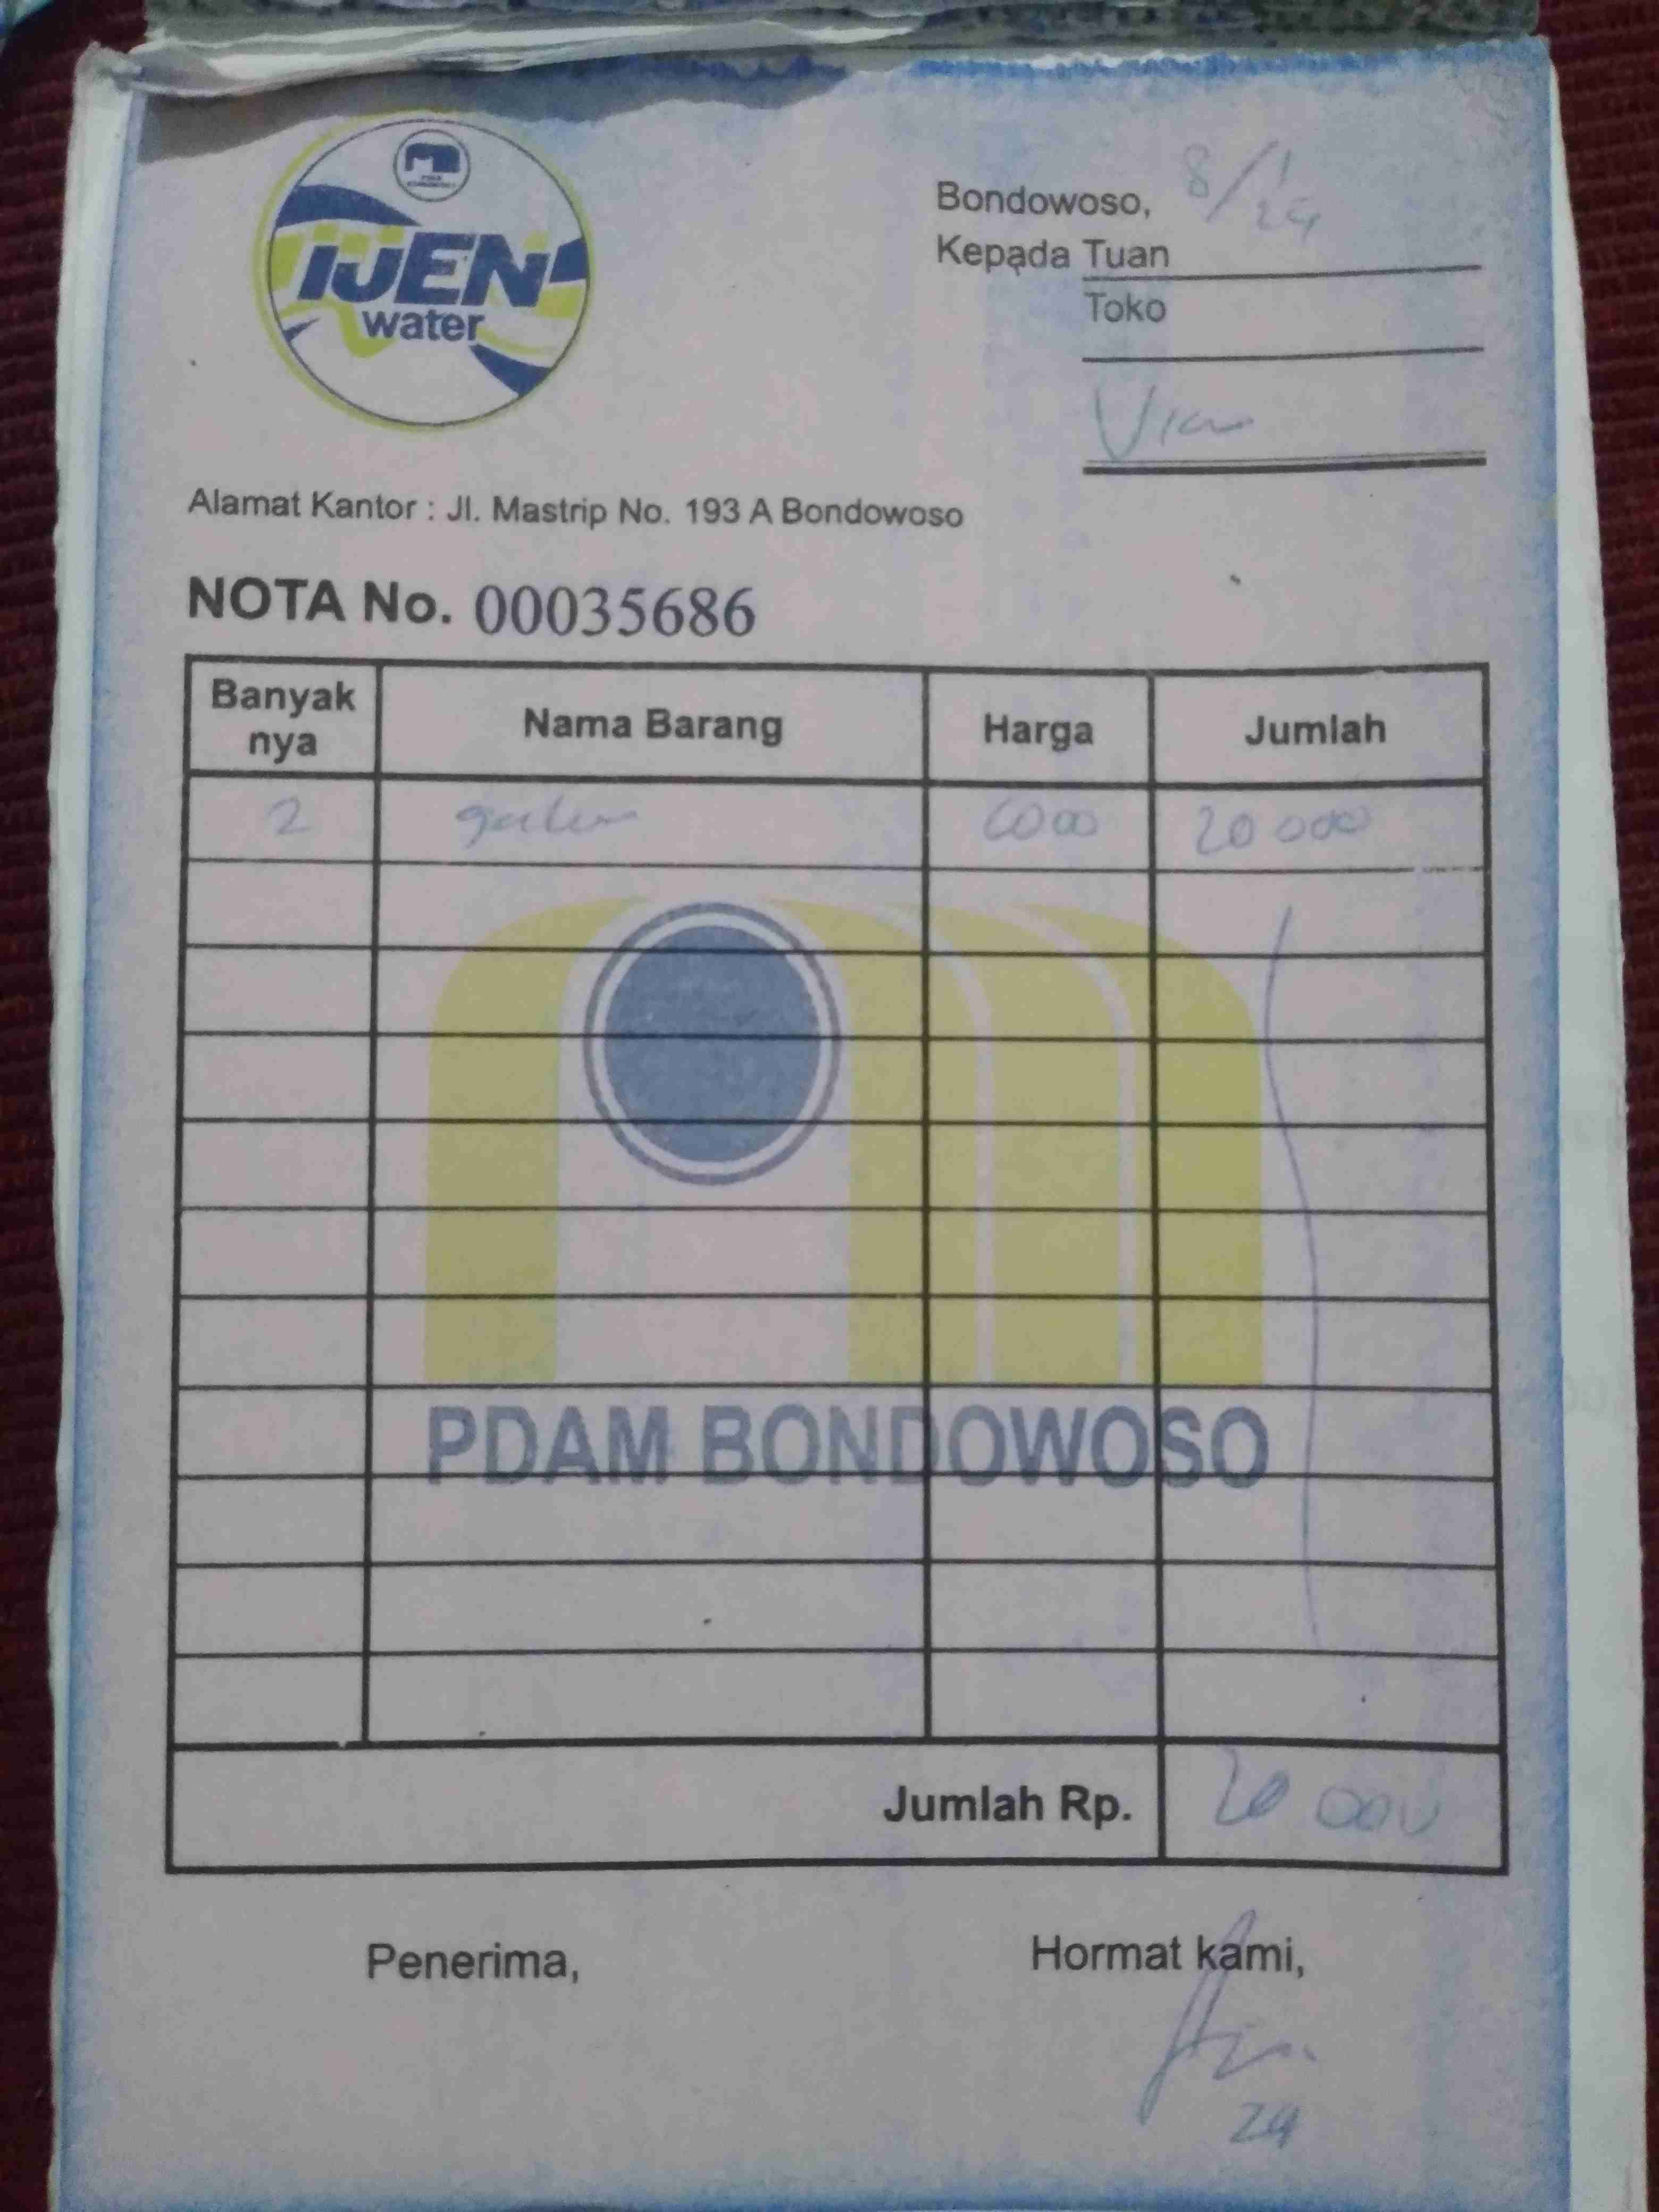 IJEN
water
Bondowoso, 8/1 24
Kepada Tuan
Toko
Alamat Kantor : Jl. Mastrip No. 193 A Bondowoso
NOTA No. 00035686
Banyak nya Nama Barang Harga Jumlah
2 galon 20 000
PDAM BONDOWOSO
Jumlah Rp. 20 000
Penerima, Hormat kami,
24